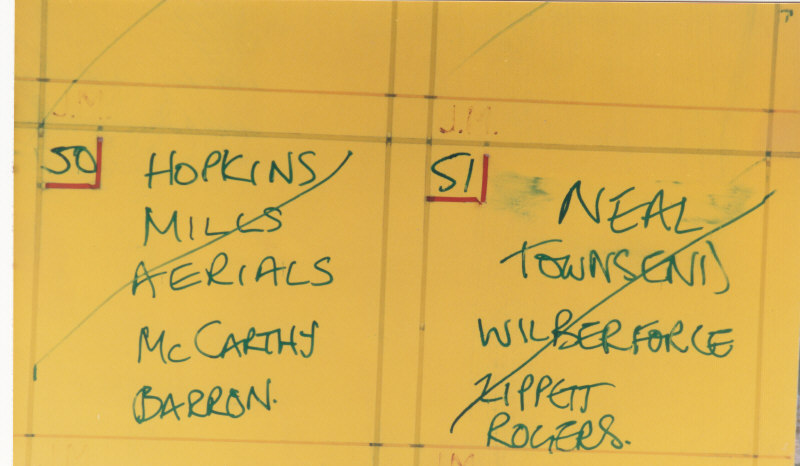 J.M.
50
HOPKINS
MILLS
AERIALS
McCARTHY
BARRON.
J.M.
51
NEAL
TOWNSEND
WILBERFORCE
KIPPETT
ROGERS.